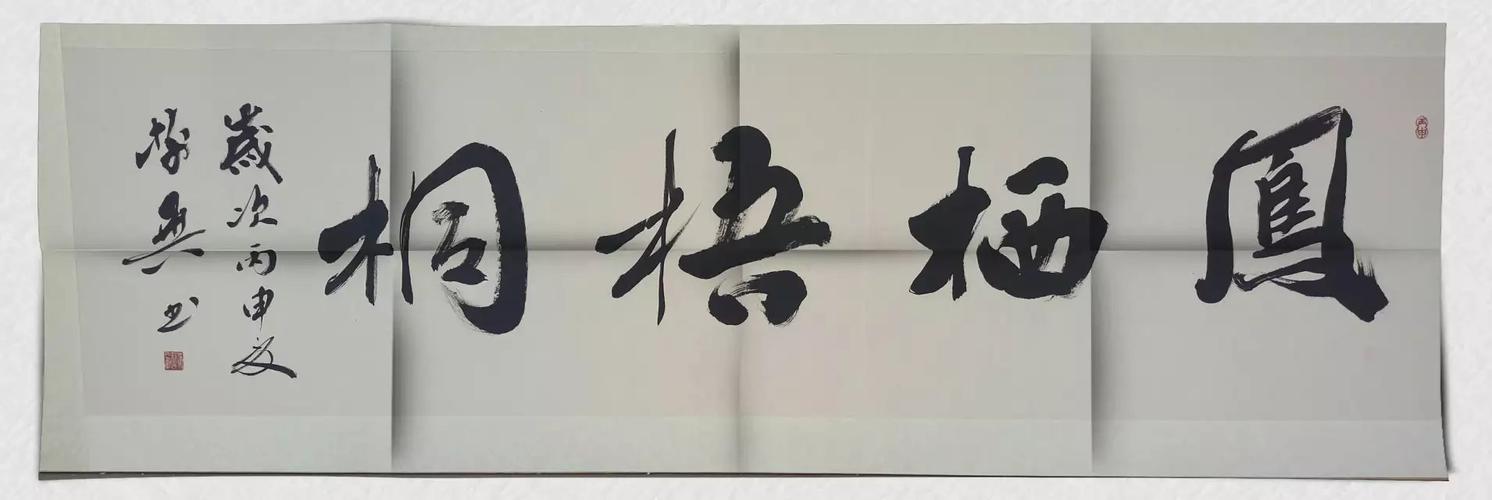 鳳栖梧桐
歲次丙申夏
書
丙申